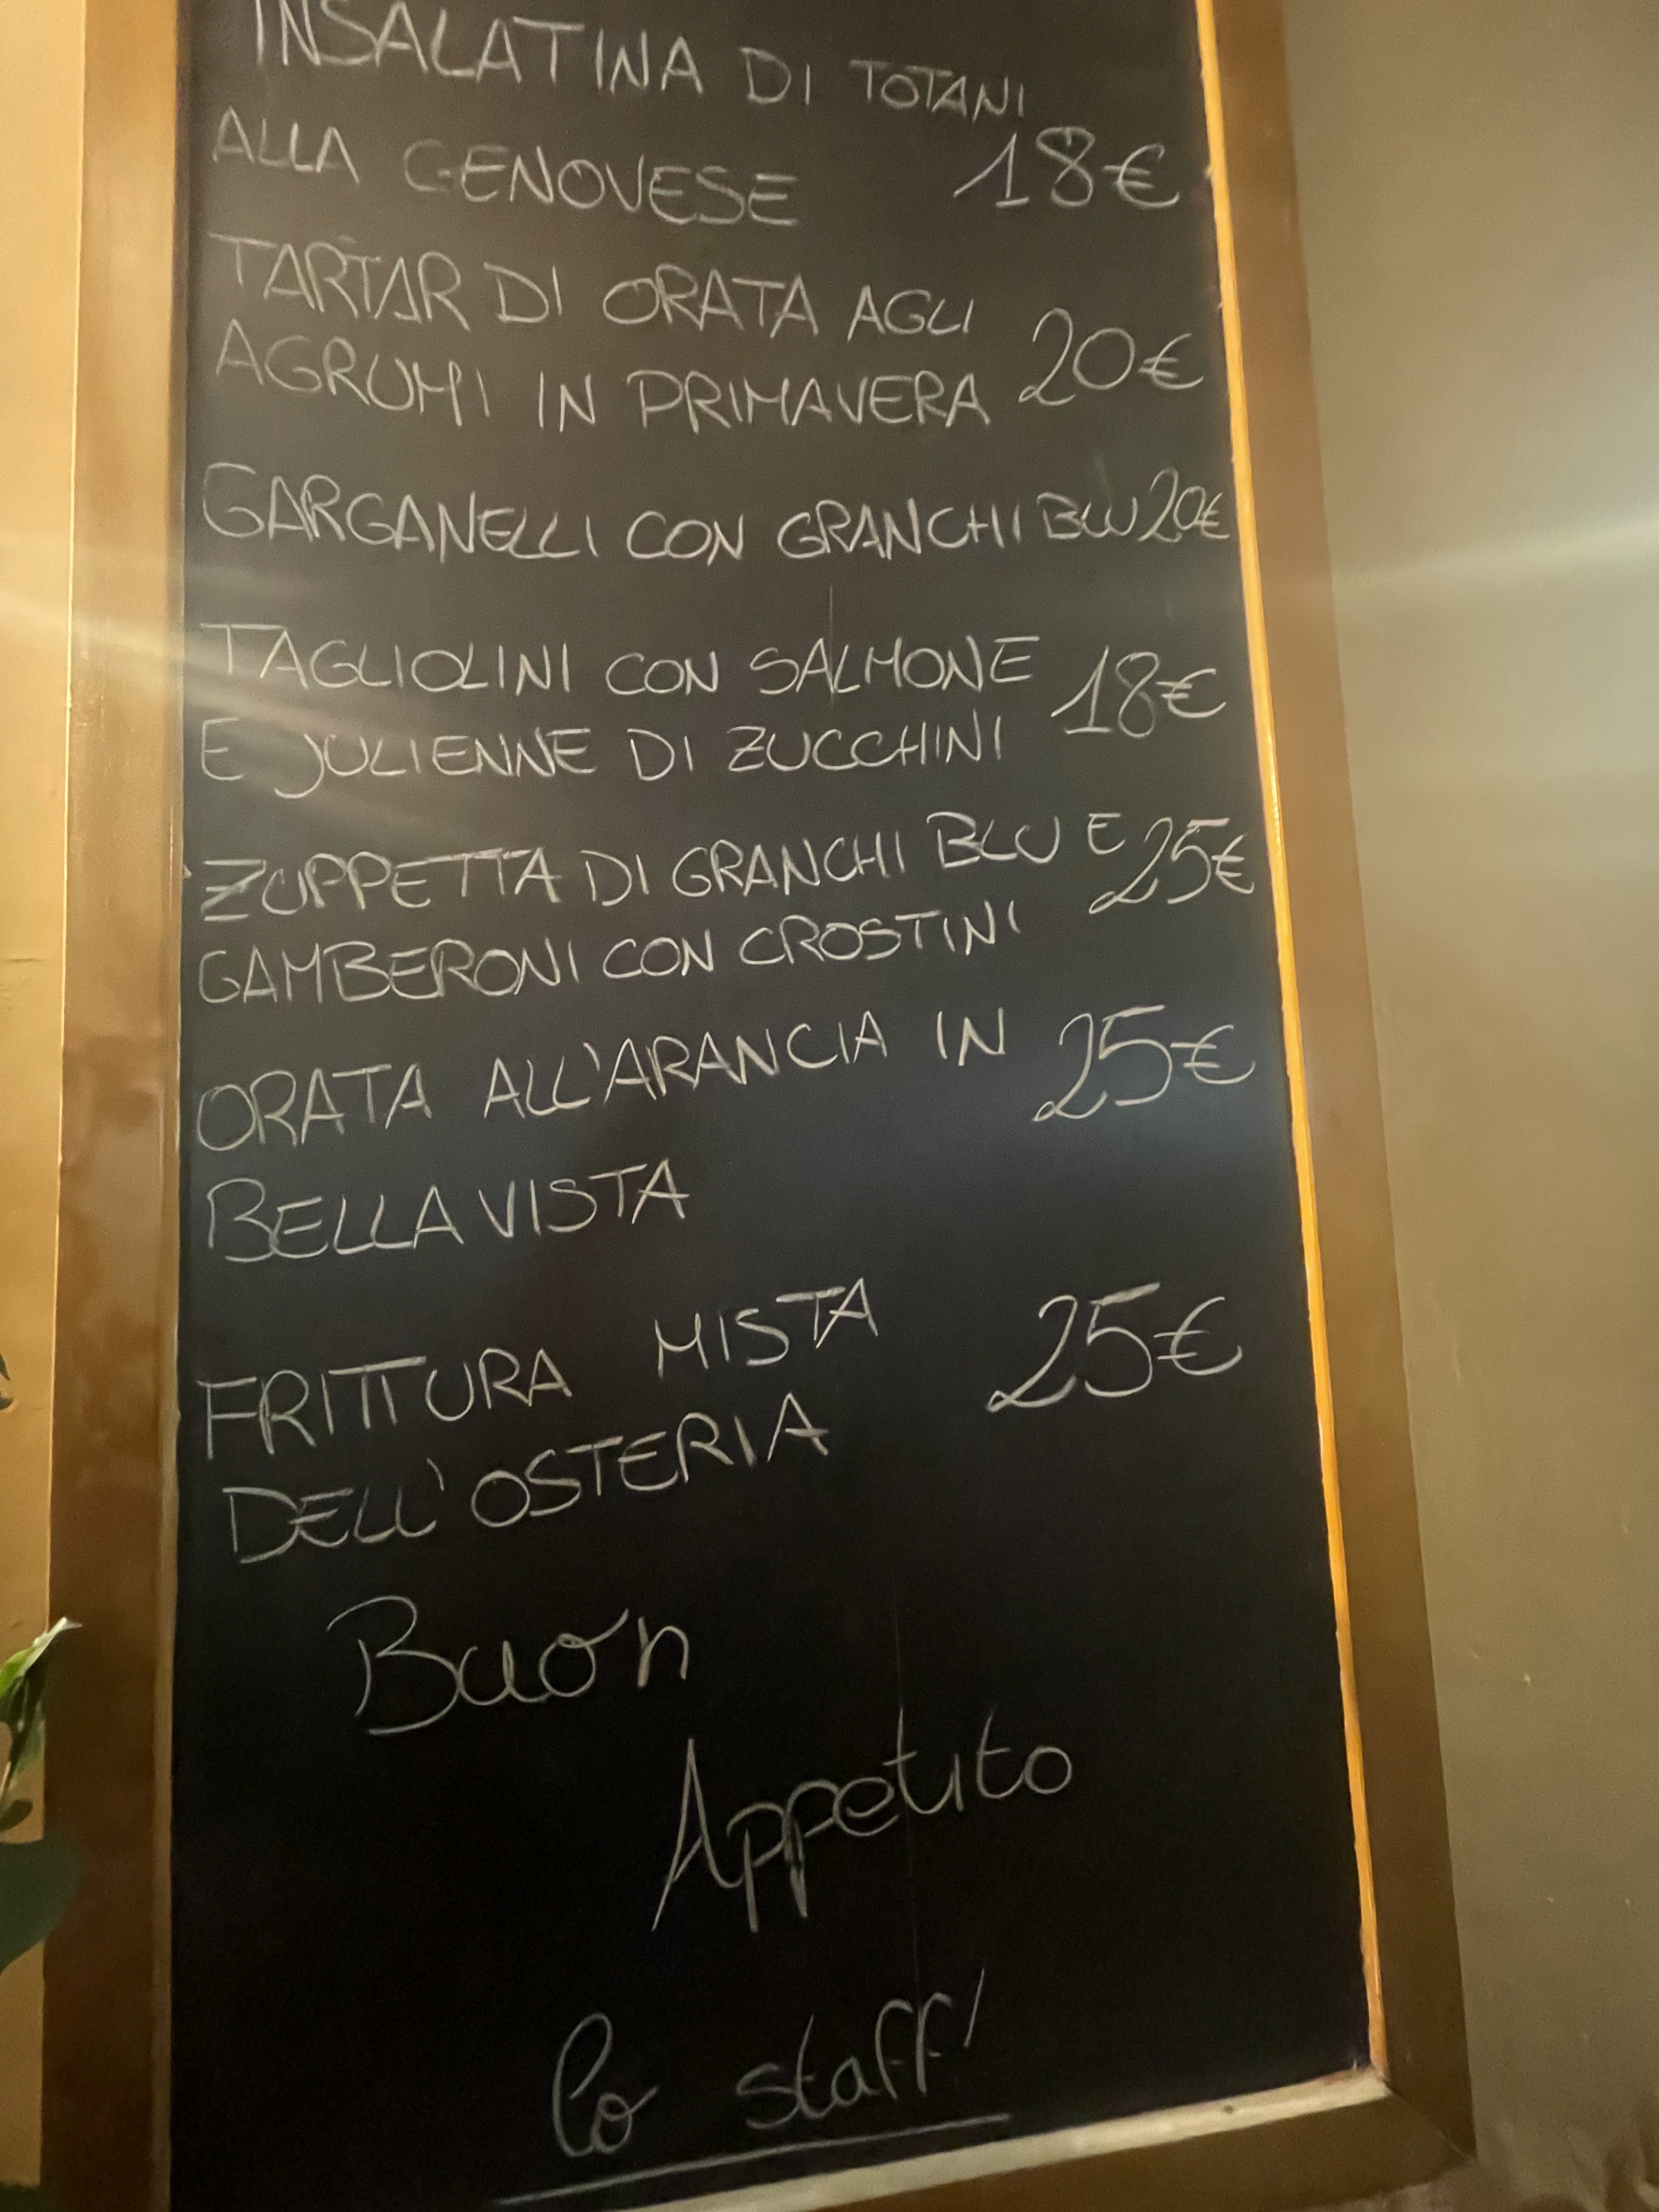 INSALATINA DI TOTANI
ALLA GENOVESE 18€
TARTAR DI ORATA AGLI
AGRUMI IN PRIMAVERA 20€
GARGANELLI CON GRANCHI BLU 20€
TAGLIOLINI CON SALMONE
E JULIENNE DI ZUCCHINI 18€
ZUPPETTA DI GRANCHI BLU E 25€
GAMBERONI CON CROSTINI
ORATA ALL'ARANCIA IN 25€
BELLAVISTA
FRITTURA MISTA 25€
DELL'OSTERIA
Buon
Appetito
lo staff!